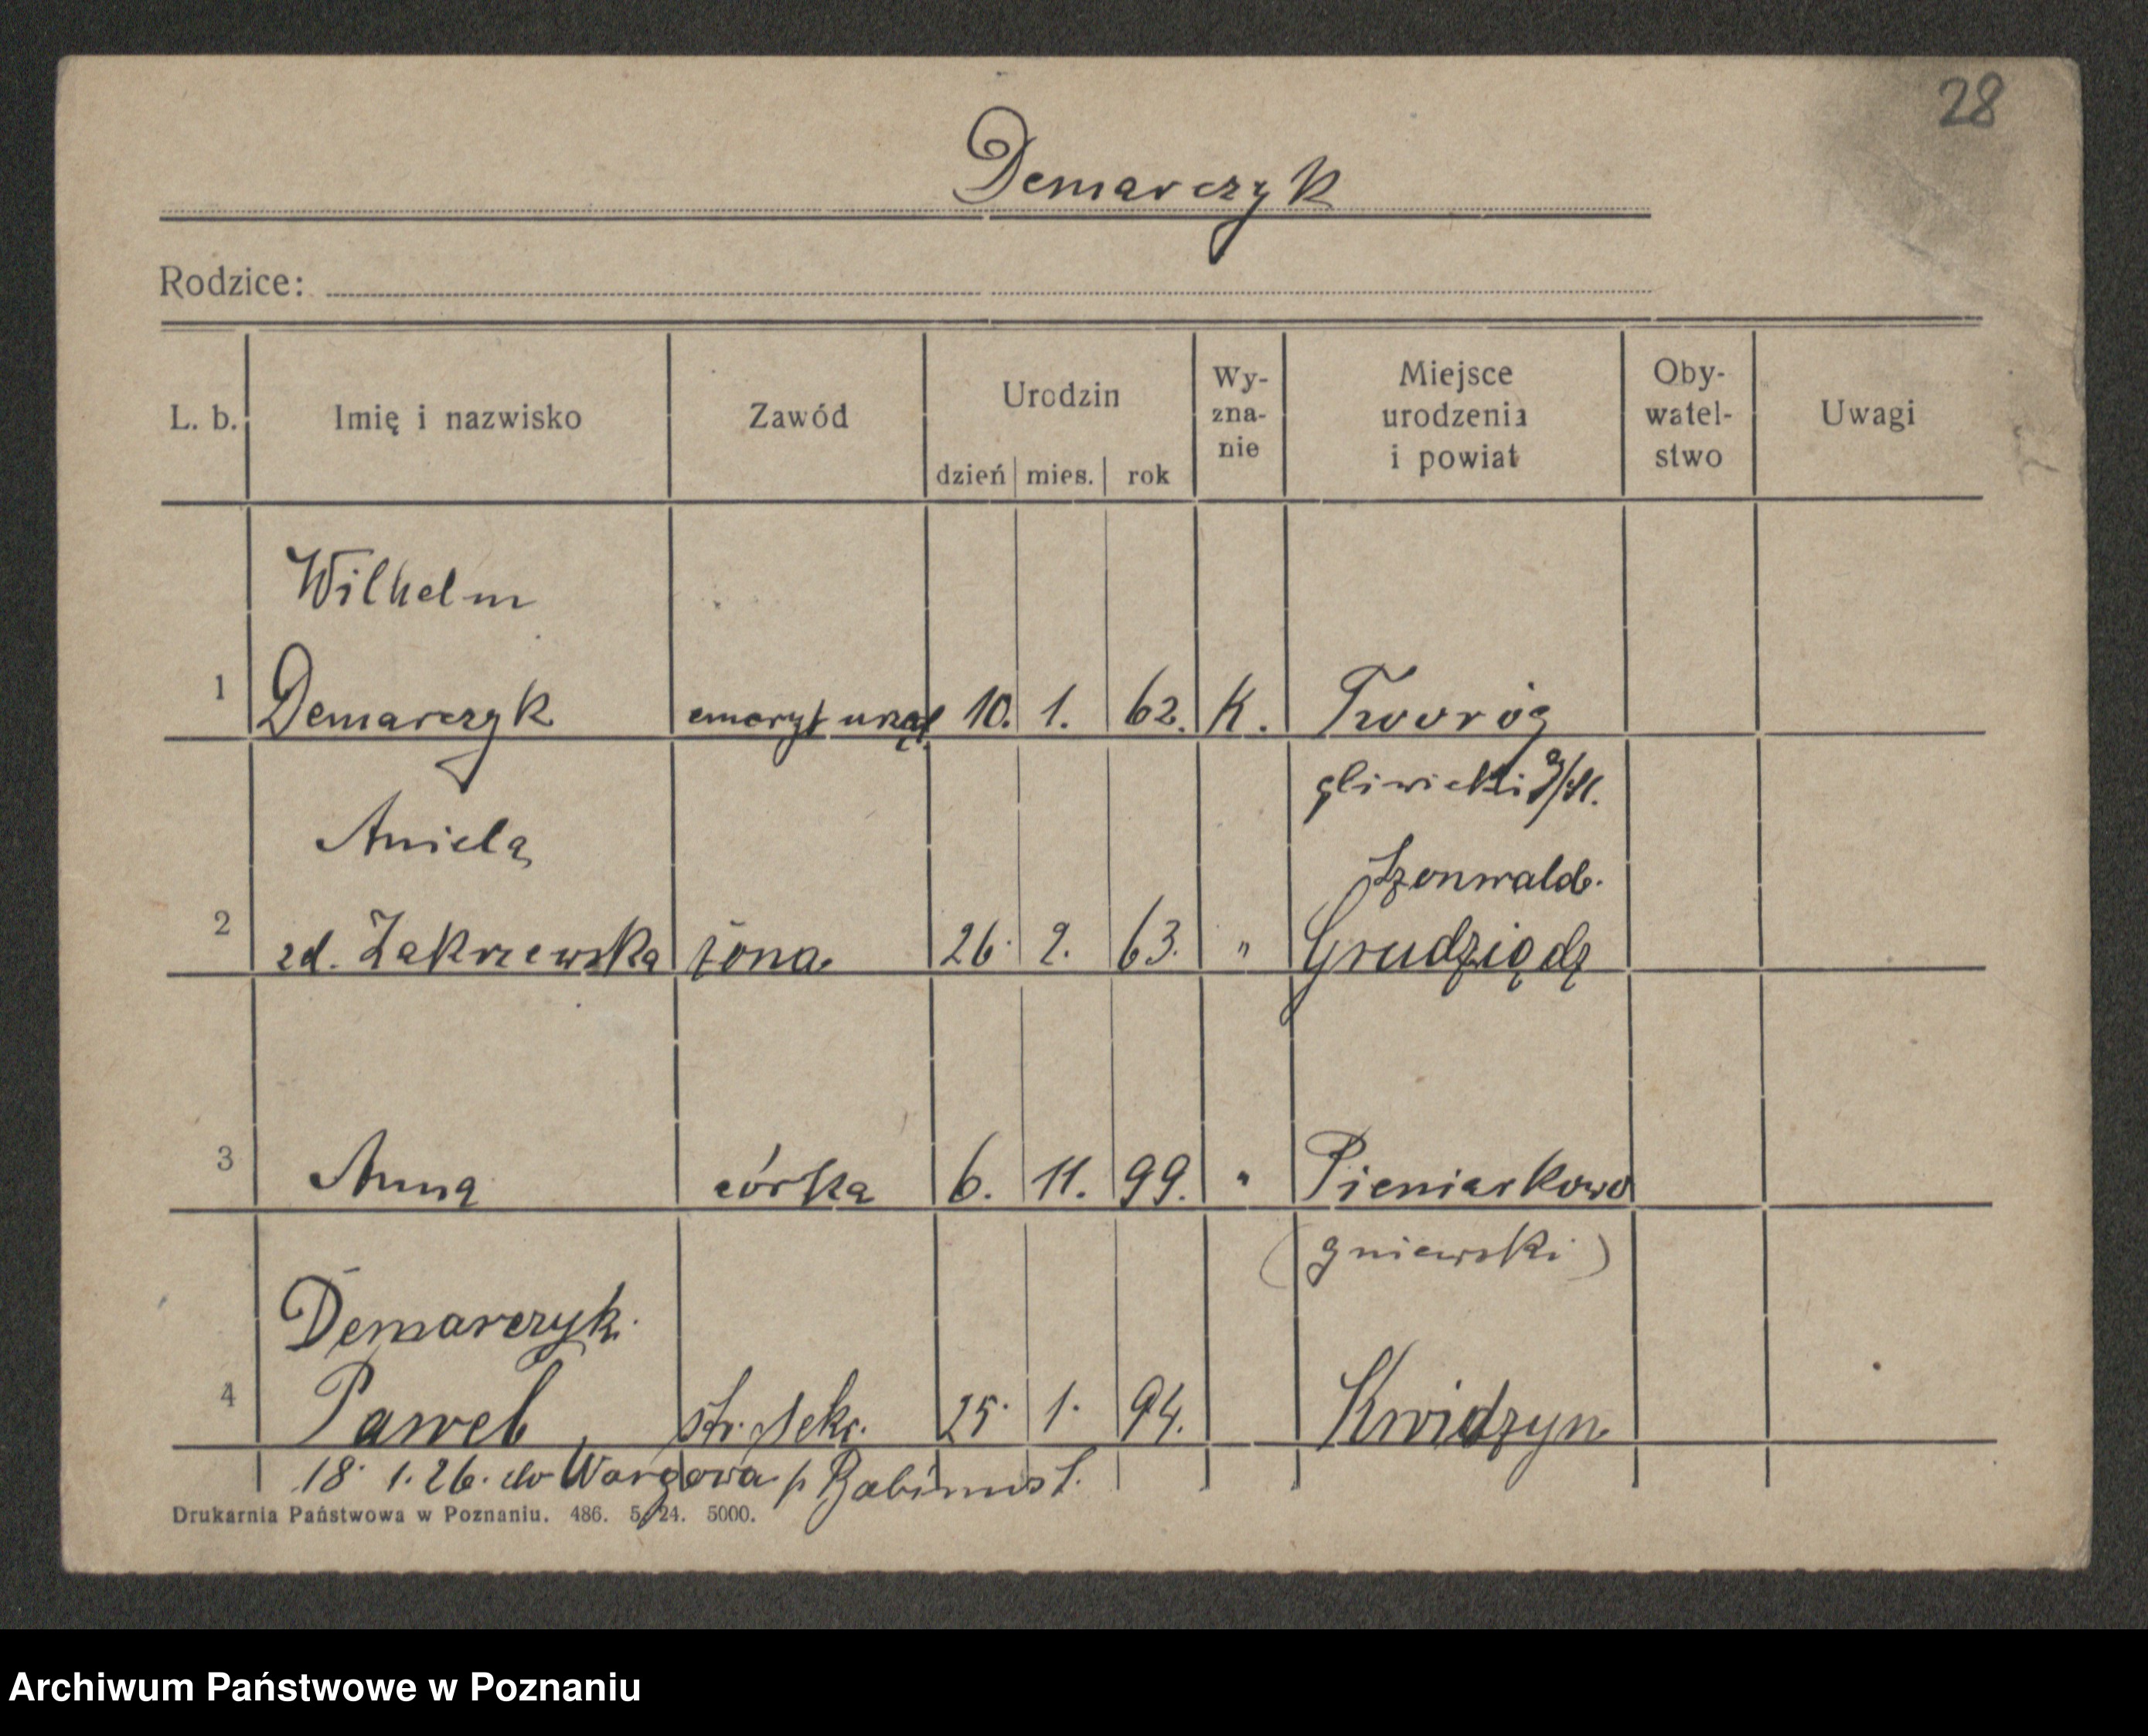 28
Demarczyk
Rodzice:
L. b. Imię i nazwisko Zawód Urodzin dzień mies. rok Wy- zna- nie Miejsce urodzenia i powiat Oby- watel- stwo Uwagi
Wilhelm
1 Demarczyk emeryt urzęd. 10. 1. 62. K. Tworóg
gliwicki
Aniela
Szonwald.
2 zd. Zakrzewska żona 26. 2. 63. " Grudziądz
3 Anna córka 6. 11. 99. " Pieniarkowo
(gniewski)
Demarczyk
4 Paweł 25. 1. 94. Kwidzyn
18. 1. 26. do Wargowa p Babimost.
Drukarnia Państwowa w Poznaniu. 486. 5. 24. 5000.
Archiwum Państwowe w Poznaniu